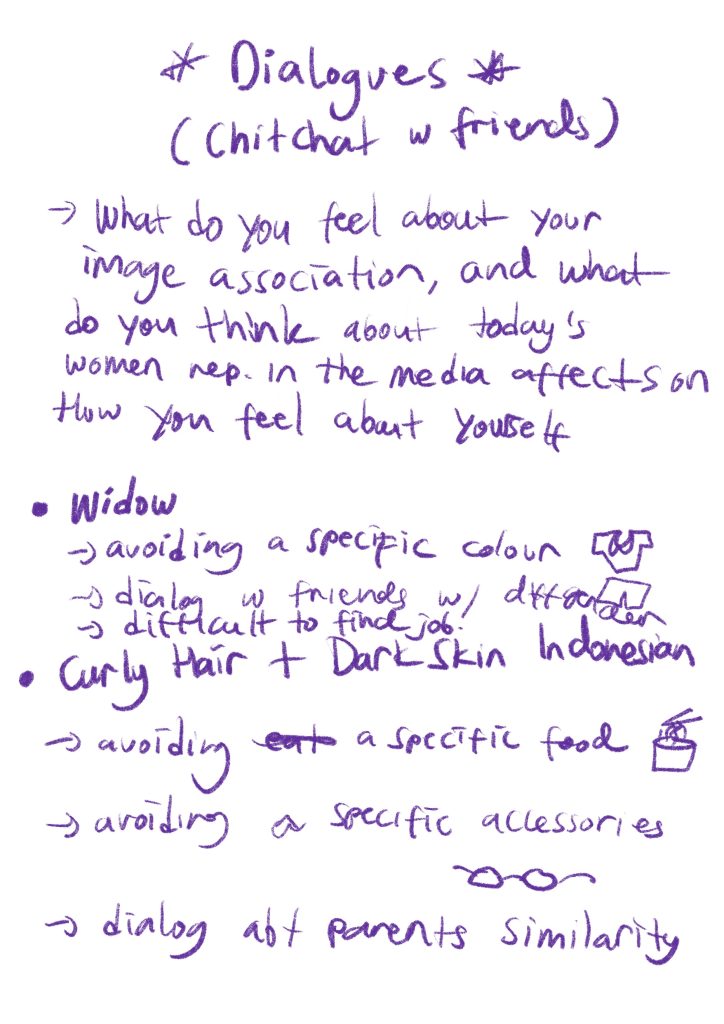 * Dialogues *
(Chitchat w friends)
→ What do you feel about your
image association, and what
do you think about today's
women rep. in the media affects on
How you feel about yourself
• Widow
→ avoiding a specific colour
→ dialog w friends w/
→ difficult to find job.
• Curly Hair + Dark Skin Indonesian
→ avoiding eat a specific food
→ avoiding a specific accessories
→ dialog abt parents similarity